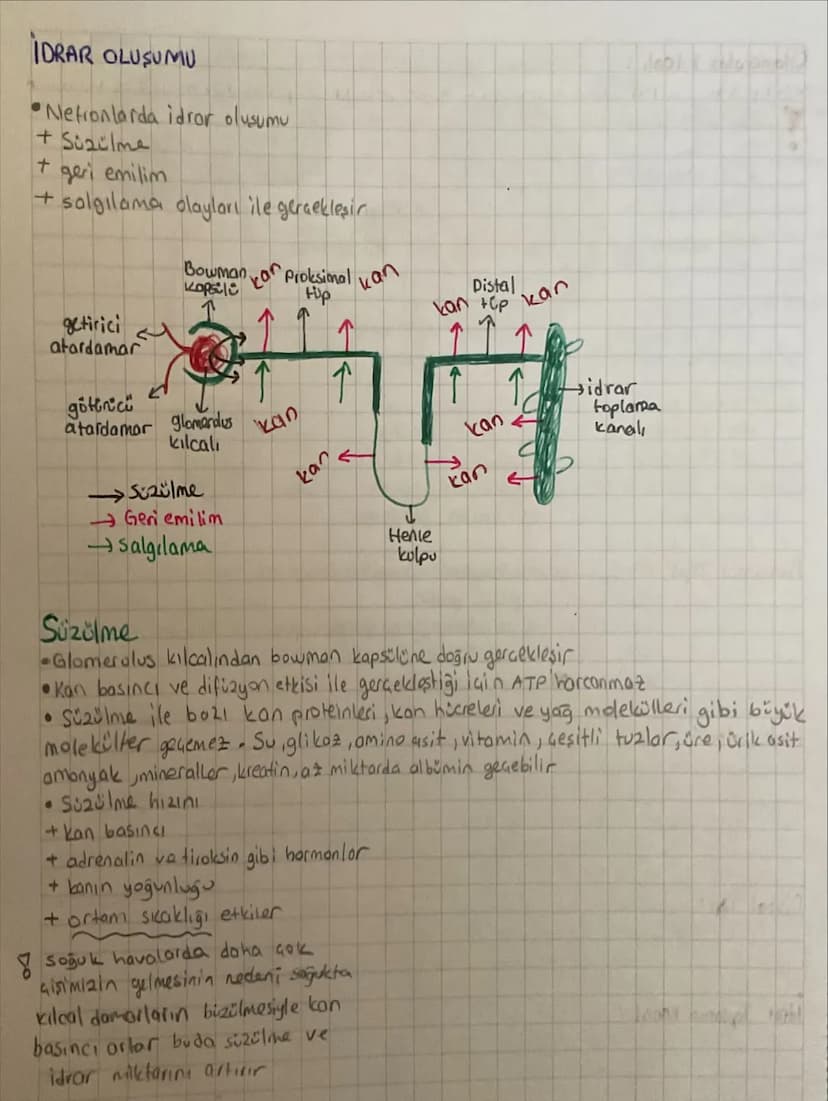 İDRAR OLUŞUMU
• Nefronlarda idrar oluşumu
+ Süzülme
+ geri emilim
+ salgılama olayları ile gerçekleşir
Bowman kapsülü
kan
Proksimal tüp
kan
Distal tüp
kan
kan
getirici atardamar
götürücü atardamar
glomarulus kılcalı
kan
kan
kan
kan
idrar toplama kanalı
Henle kulpu
→ Süzülme
→ Geri emilim
→ Salgılama
Süzülme
• Glomerulus kılcalından bowman kapsülüne doğru gerçekleşir
• Kan basıncı ve difüzyon etkisi ile gerçekleştiği için ATP harcanmaz
• Süzülme ile bazı kan proteinleri, kan hücreleri ve yağ molekülleri gibi büyük
moleküller geçemez. Su, glikoz, amino asit, vitamin, çeşitli tuzlar, üre, ürik asit
amonyak, mineraller, kreatin, az miktarda albümin geçebilir
• Süzülme hızını
+ kan basıncı
+ adrenalin ve tiroksin gibi hormonlar
+ kanın yoğunluğu
+ ortam sıcaklığı etkiler
! soğuk havalarda daha çok
çişimizin gelmesinin nedeni soğukta
kılcal damarların büzülmesiyle kan
basıncı artar buda süzülme ve
idrar miktarını artırır